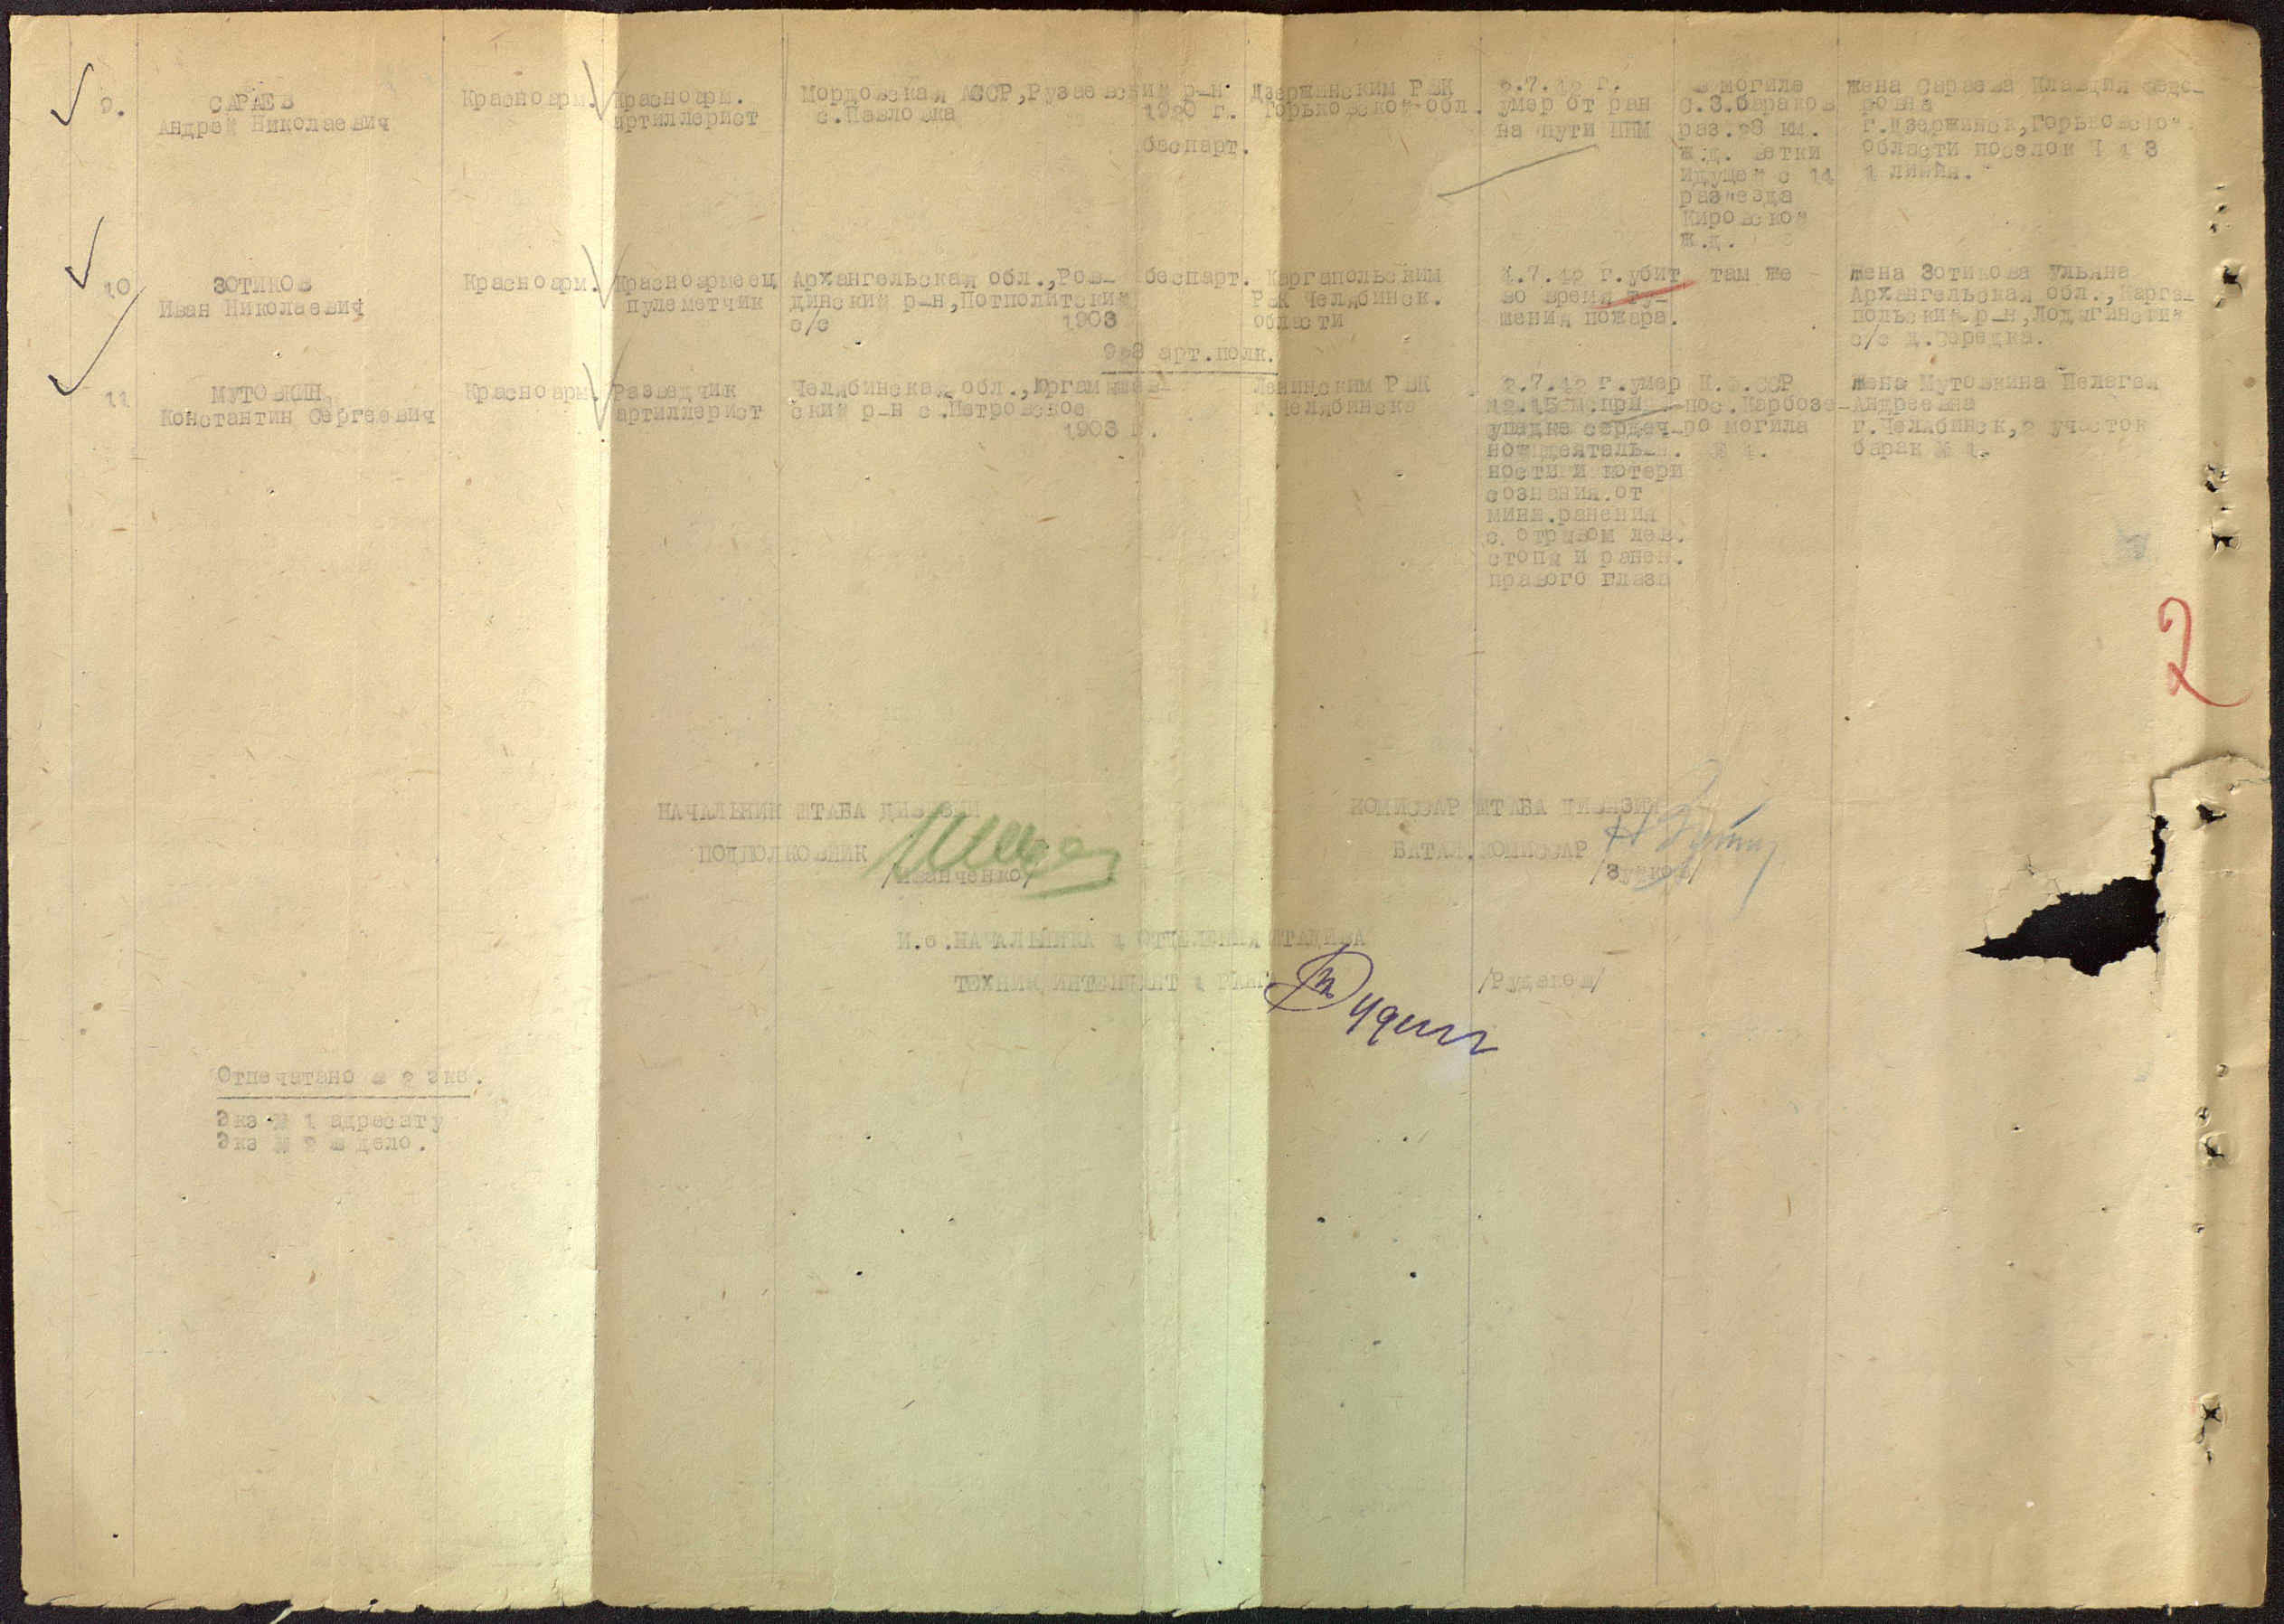 9.
САРАЕВ
Андрей Николаевич
Красноарм.
Красноарм.
артиллерист
Мордовская АССР, Рузаевский р-н
с.Павловка 1920 г.
беспарт.
Дзержинским РВК
Горьковской обл.
2.7.42 г.
умер от ран
на пути ППМ
в могиле
с.З.бараков
раз. км.
ж.д. ветки
идущей с 14
раз'езда
Кировской
ж.д.
жена Сараева Клавдия Федо-
ровна
г.Дзержинск, Горьковской
области поселок
1 линия.
10
ЗОТИКОВ
Иван Николаевич
Красноарм.
Красноармеец
пулеметчик
Архангельская обл., Ров-
динский р-н, Потполитский
с/с 1903
беспарт.
Каргапольским
РВК Челябинск.
области
1.7.42 г. убит
во время ту-
шения пожара.
там же
жена Зотикова Ульяна
Архангельская обл., Карга-
польский р-н, Лодыгинский
с/с д.Середка.
арт.полк.
11
МУТОВКИН
Константин Сергеевич
Красноарм.
Разведчик
артиллерист
Челябинская обл., Юргамышев-
ский р-н с.Петровское
1903 г.
Ленинским РВК
г.Челябинска
2.7.42 г. умер
12.15 м. при
упадке сердеч-
ной деятель-
ности и потери
сознания от
мин.ранения
с отрывом лев.
стопы и ранен.
правого глаза
К.Ф.ССР
пос. Карбозе-
ро могила
№ 1.
жена Мутовкина Пелагея
Андреевна
г.Челябинск, 2 участок
барак № 1.
2
НАЧАЛЬНИК ШТАБА ДИВИЗИИ
ПОДПОЛКОВНИК
/Иванченко/
КОМИССАР ШТАБА ДИВИЗИИ
БАТАЛ.КОМИССАР
/Зуйков/
И.о.НАЧАЛЬНИКА 4 ОТДЕЛЕНИЯ ШТАДИВА
ТЕХНИК ИНТЕНДАНТ 1 РАНГА
/Рудаков/
Отпечатано в 2 экз.
Экз № 1 адресату
Экз № 2 в дело.